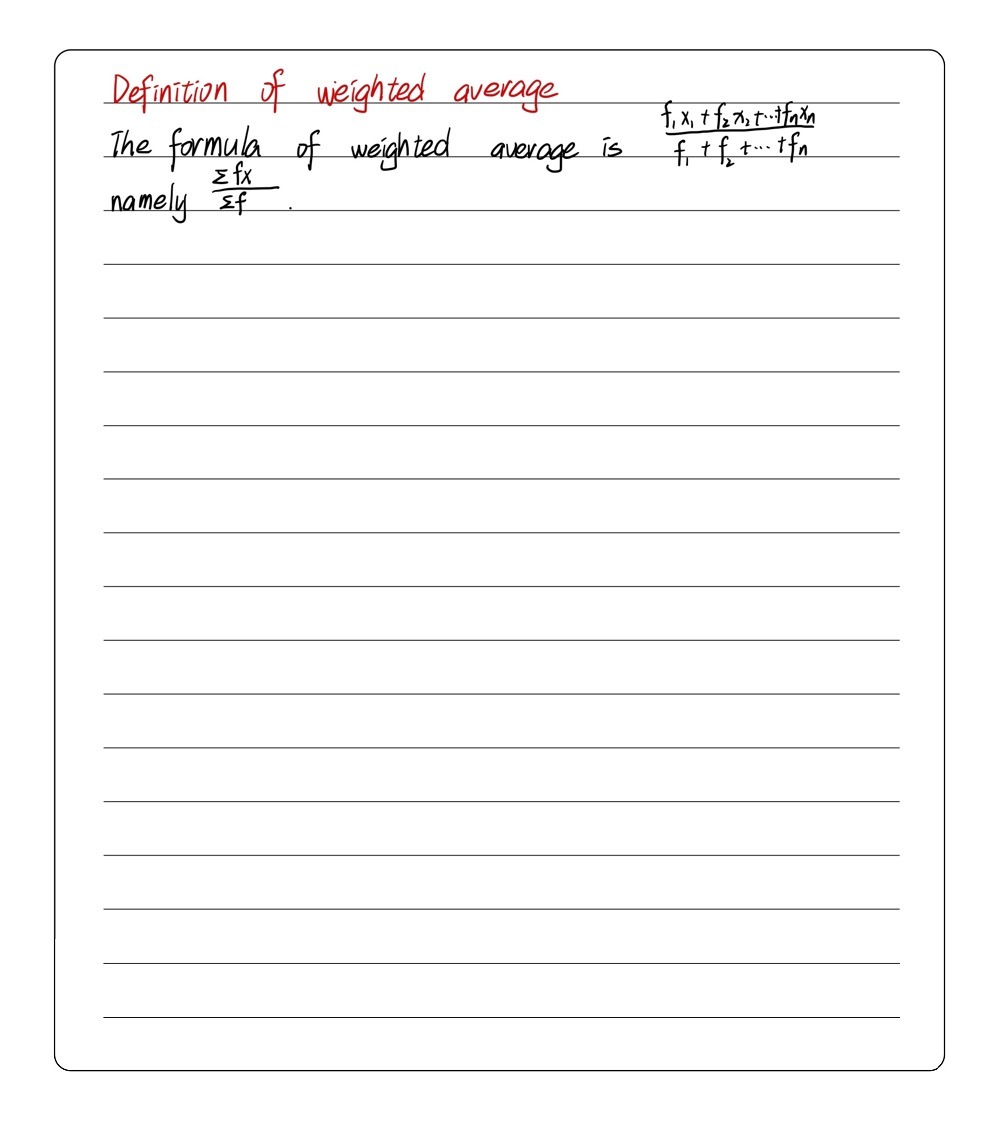 Definition of weighted average
The formula of weighted average is \frac{f_1 x_1 + f_2 x_2 + \cdots + f_n x_n}{f_1 + f_2 + \cdots + f_n}
namely \frac{\Sigma fx}{\Sigma f} .